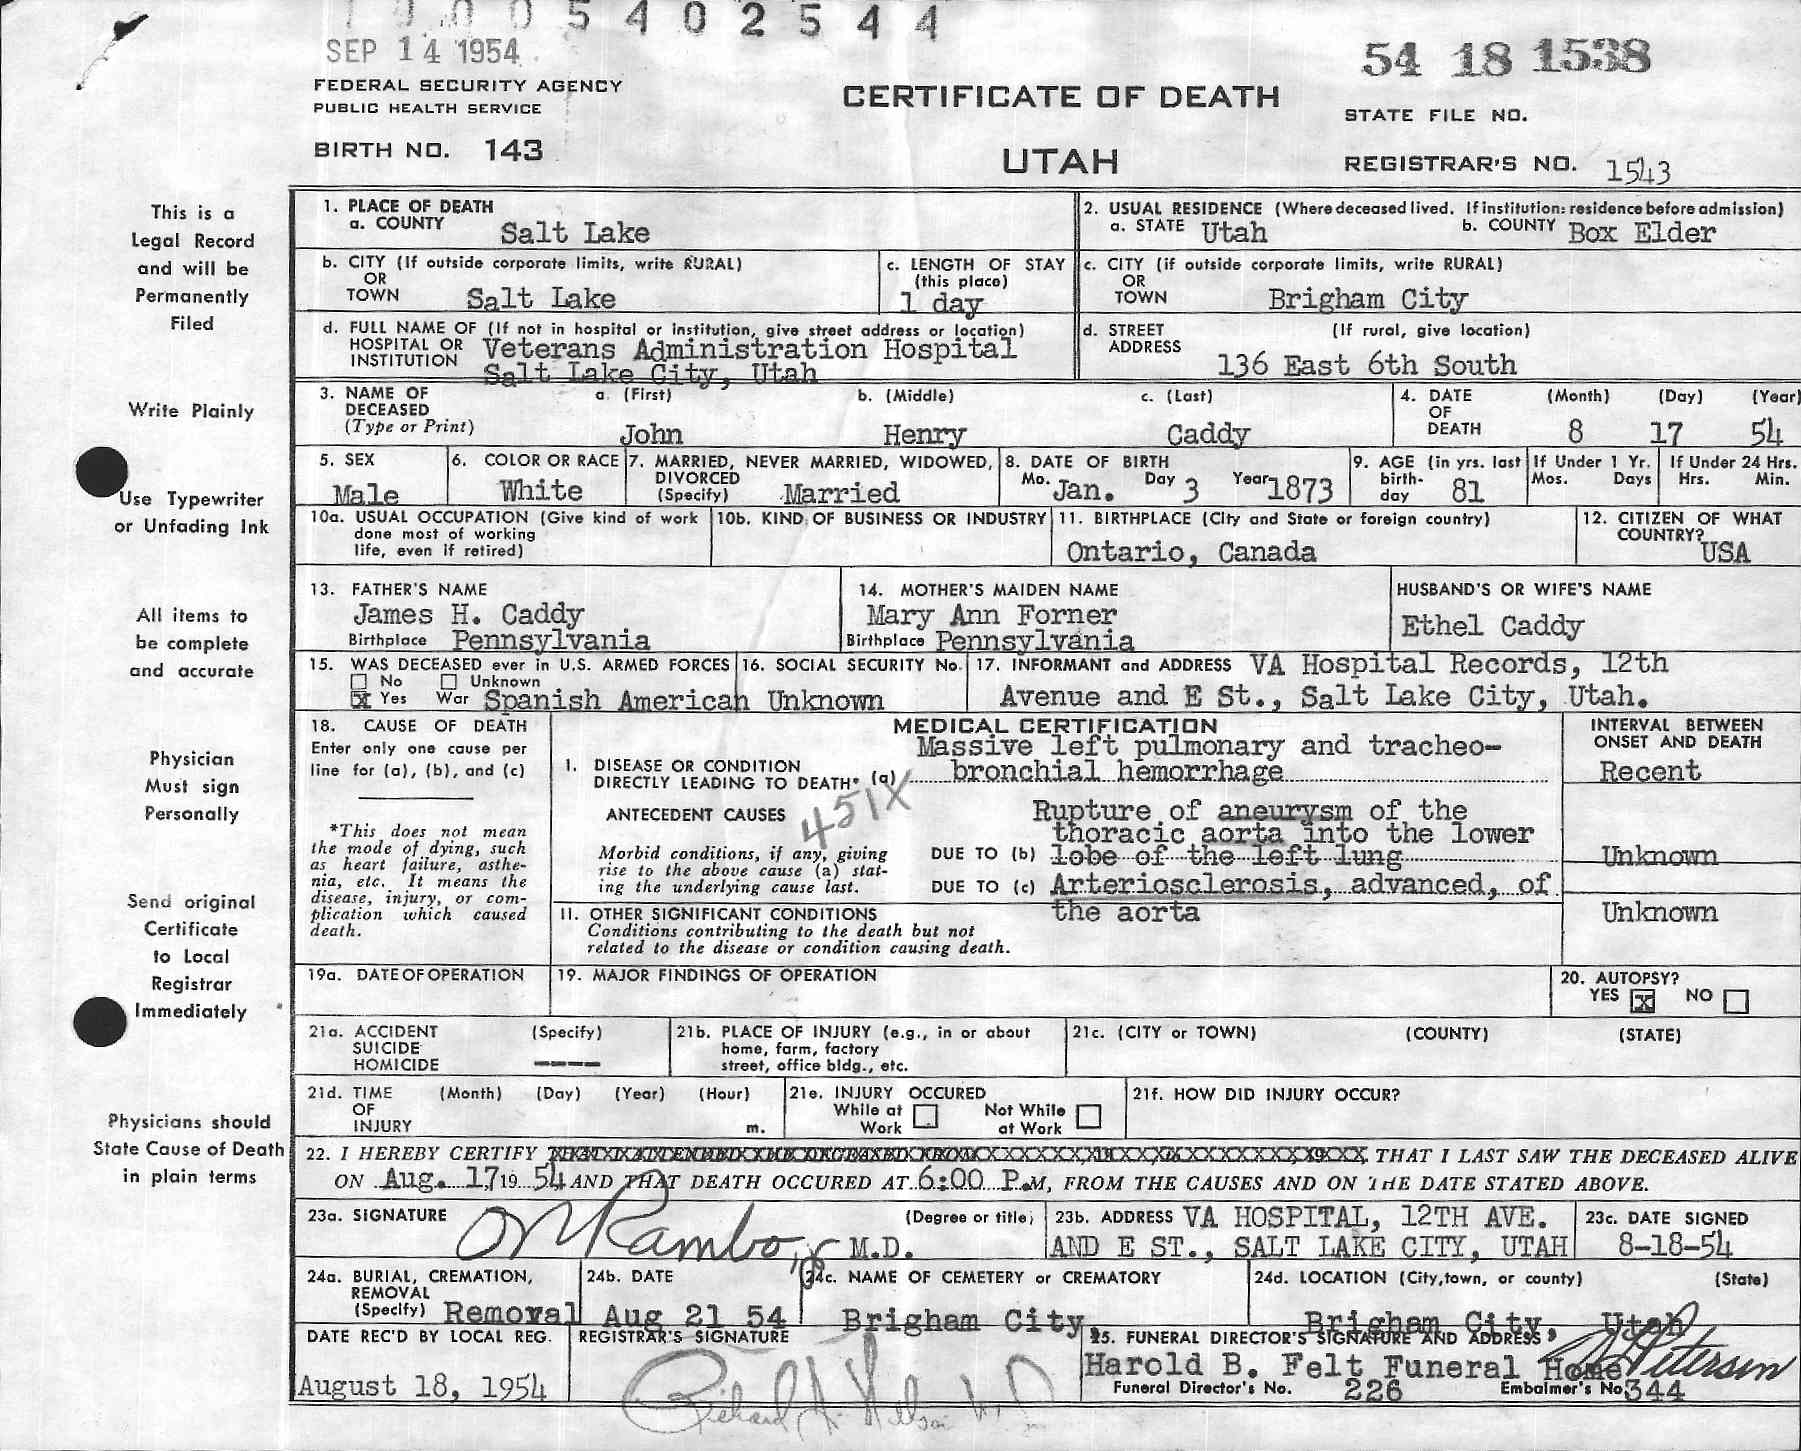 5 4 0 2 5 4 4
SEP 14 1954
54 18 1538
FEDERAL SECURITY AGENCY
PUBLIC HEALTH SERVICE
CERTIFICATE OF DEATH
STATE FILE NO.
BIRTH NO. 143
UTAH
REGISTRAR'S NO. 1543
This is a
Legal Record
and will be
Permanently
Filed
Write Plainly
Use Typewriter
or Unfading Ink
All items to
be complete
and accurate
Physician
Must sign
Personally
Send original
Certificate
to Local
Registrar
Immediately
Physicians should
State Cause of Death
in plain terms
1. PLACE OF DEATH
a. COUNTY Salt Lake
2. USUAL RESIDENCE (Where deceased lived. If institution: residence before admission)
a. STATE Utah b. COUNTY Box Elder
b. CITY (If outside corporate limits, write RURAL)
OR
TOWN Salt Lake
c. LENGTH OF STAY
(this place)
1 day
c. CITY (if outside corporate limits, write RURAL)
OR
TOWN Brigham City
d. FULL NAME OF (If not in hospital or institution, give street address or location)
HOSPITAL OR
INSTITUTION Veterans Administration Hospital
Salt Lake City, Utah
d. STREET (If rural, give location)
ADDRESS
136 East 6th South
3. NAME OF
DECEASED
(Type or Print)
a. (First) b. (Middle) c. (Last)
John Henry Caddy
4. DATE
OF
DEATH
(Month) (Day) (Year)
8 17 54
5. SEX
Male
6. COLOR OR RACE
White
7. MARRIED, NEVER MARRIED, WIDOWED,
DIVORCED
(Specify) Married
8. DATE OF BIRTH
Mo. Jan. Day 3 Year 1873
9. AGE (in yrs. last
birth-
day 81
If Under 1 Yr.
Mos. Days
If Under 24 Hrs.
Hrs. Min.
10a. USUAL OCCUPATION (Give kind of work
done most of working
life, even if retired)
10b. KIND OF BUSINESS OR INDUSTRY
11. BIRTHPLACE (City and State or foreign country)
Ontario, Canada
12. CITIZEN OF WHAT
COUNTRY?
USA
13. FATHER'S NAME
James H. Caddy
Birthplace Pennsylvania
14. MOTHER'S MAIDEN NAME
Mary Ann Forner
Birthplace Pennsylvania
HUSBAND'S OR WIFE'S NAME
Ethel Caddy
15. WAS DECEASED ever in U.S. ARMED FORCES
No Unknown
x Yes War Spanish American
16. SOCIAL SECURITY No.
Unknown
17. INFORMANT and ADDRESS VA Hospital Records, 12th
Avenue and E St., Salt Lake City, Utah.
18. CAUSE OF DEATH
Enter only one cause per
line for (a), (b), and (c)
*This does not mean
the mode of dying, such
as heart failure, asthe-
nia, etc. It means the
disease, injury, or com-
plication which caused
death.
MEDICAL CERTIFICATION
Massive left pulmonary and tracheo-
I. DISEASE OR CONDITION
DIRECTLY LEADING TO DEATH* (a) bronchial hemorrhage
451X
ANTECEDENT CAUSES
Morbid conditions, if any, giving
rise to the above cause (a) stat-
ing the underlying cause last.
Rupture of aneurysm of the
thoracic aorta into the lower
DUE TO (b) lobe of the left lung
DUE TO (c) Arteriosclerosis, advanced, of
the aorta
II. OTHER SIGNIFICANT CONDITIONS
Conditions contributing to the death but not
related to the disease or condition causing death.
INTERVAL BETWEEN
ONSET AND DEATH
Recent
Unknown
Unknown
19a. DATE OF OPERATION
19. MAJOR FINDINGS OF OPERATION
20. AUTOPSY?
YES x NO
21a. ACCIDENT (Specify)
SUICIDE
HOMICIDE ----
21b. PLACE OF INJURY (e.g., in or about
home, farm, factory
street, office bldg., etc.
21c. (CITY or TOWN) (COUNTY) (STATE)
21d. TIME (Month) (Day) (Year) (Hour)
OF
INJURY m.
21e. INJURY OCCURED
While at Work Not While at Work
21f. HOW DID INJURY OCCUR?
22. I HEREBY CERTIFY THAT I LAST SAW THE DECEASED ALIVE
ON Aug. 17, 19 54 AND THAT DEATH OCCURED AT 6:00 P.M, FROM THE CAUSES AND ON THE DATE STATED ABOVE.
23a. SIGNATURE (Degree or title)
Rambo, Jr M.D.
23b. ADDRESS VA HOSPITAL, 12TH AVE.
AND E ST., SALT LAKE CITY, UTAH
23c. DATE SIGNED
8-18-54
24a. BURIAL, CREMATION,
REMOVAL
(Specify) Removal
24b. DATE
Aug 21 54
24c. NAME OF CEMETERY or CREMATORY
Brigham City,
24d. LOCATION (City, town, or county) (State)
Brigham City, Utah
DATE REC'D BY LOCAL REG.
August 18, 1954
REGISTRAR'S SIGNATURE
Richard
25. FUNERAL DIRECTOR'S SIGNATURE AND ADDRESS
Harold B. Felt Funeral Home Petersen
Funeral Director's No. 226 Embalmer's No 344